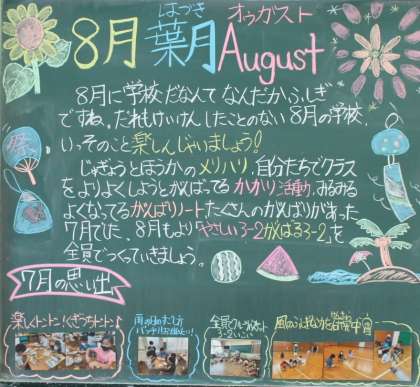 はづき オウガスト
8月 葉月 August
8月に学校だなんて なんだかふしぎ
ですね。だれもけいけんしたことのない8月の学校。
いっそのこと楽しんじゃいましょう!
じゅぎょうとほうかのメリハリ、自分たちでクラス
をよりよくしようとがんばってるかかり活動、みるみる
よくなってるがんばりノート。たくさんのがんばりがあった
7月でした。8月もより「やさしい3-2がんばる3-2」を
全員でつくっていきましょう。
祭
7月の思い出
楽しいトントン!くぎうちトントン♪